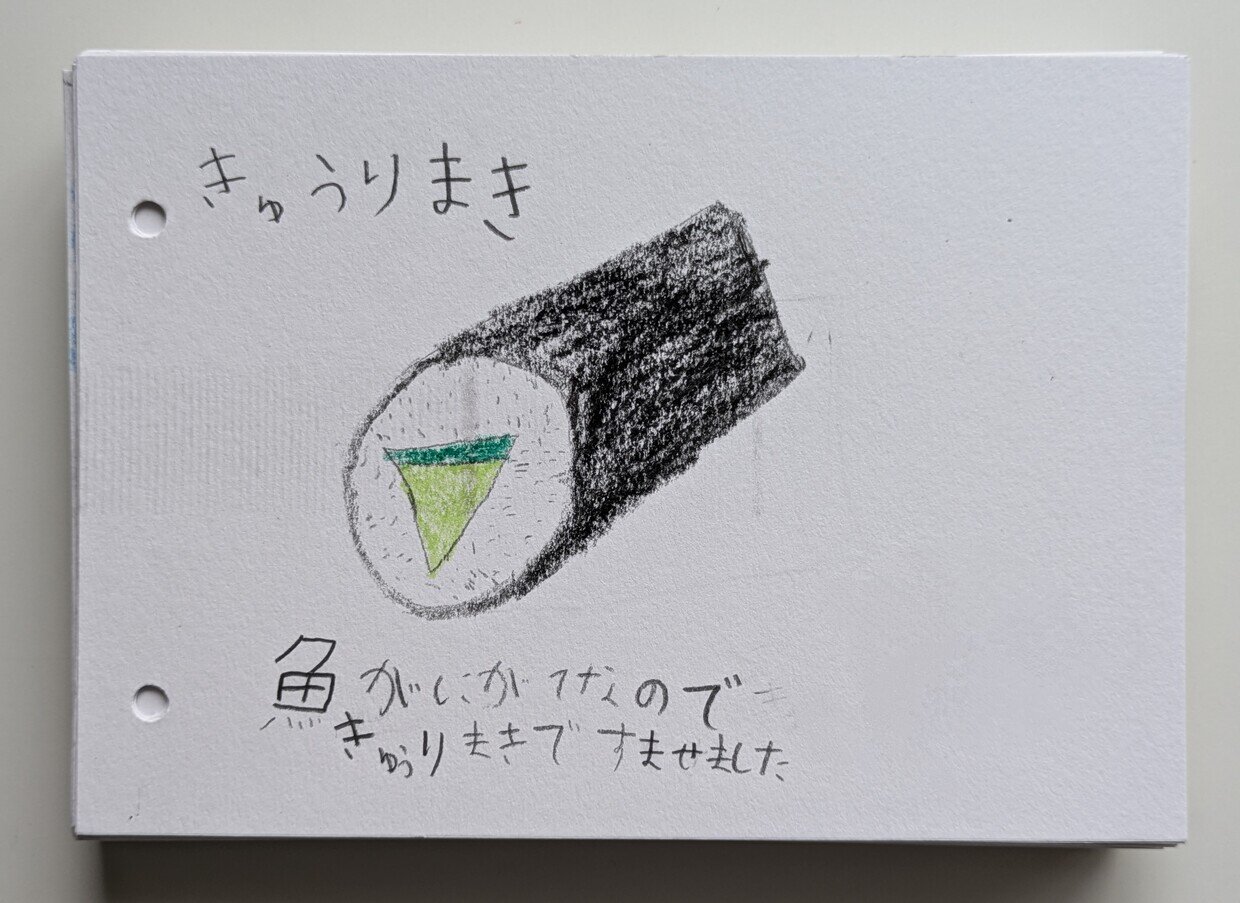 きゅうりまき
魚がにがてなので
きゅうりまきですませました